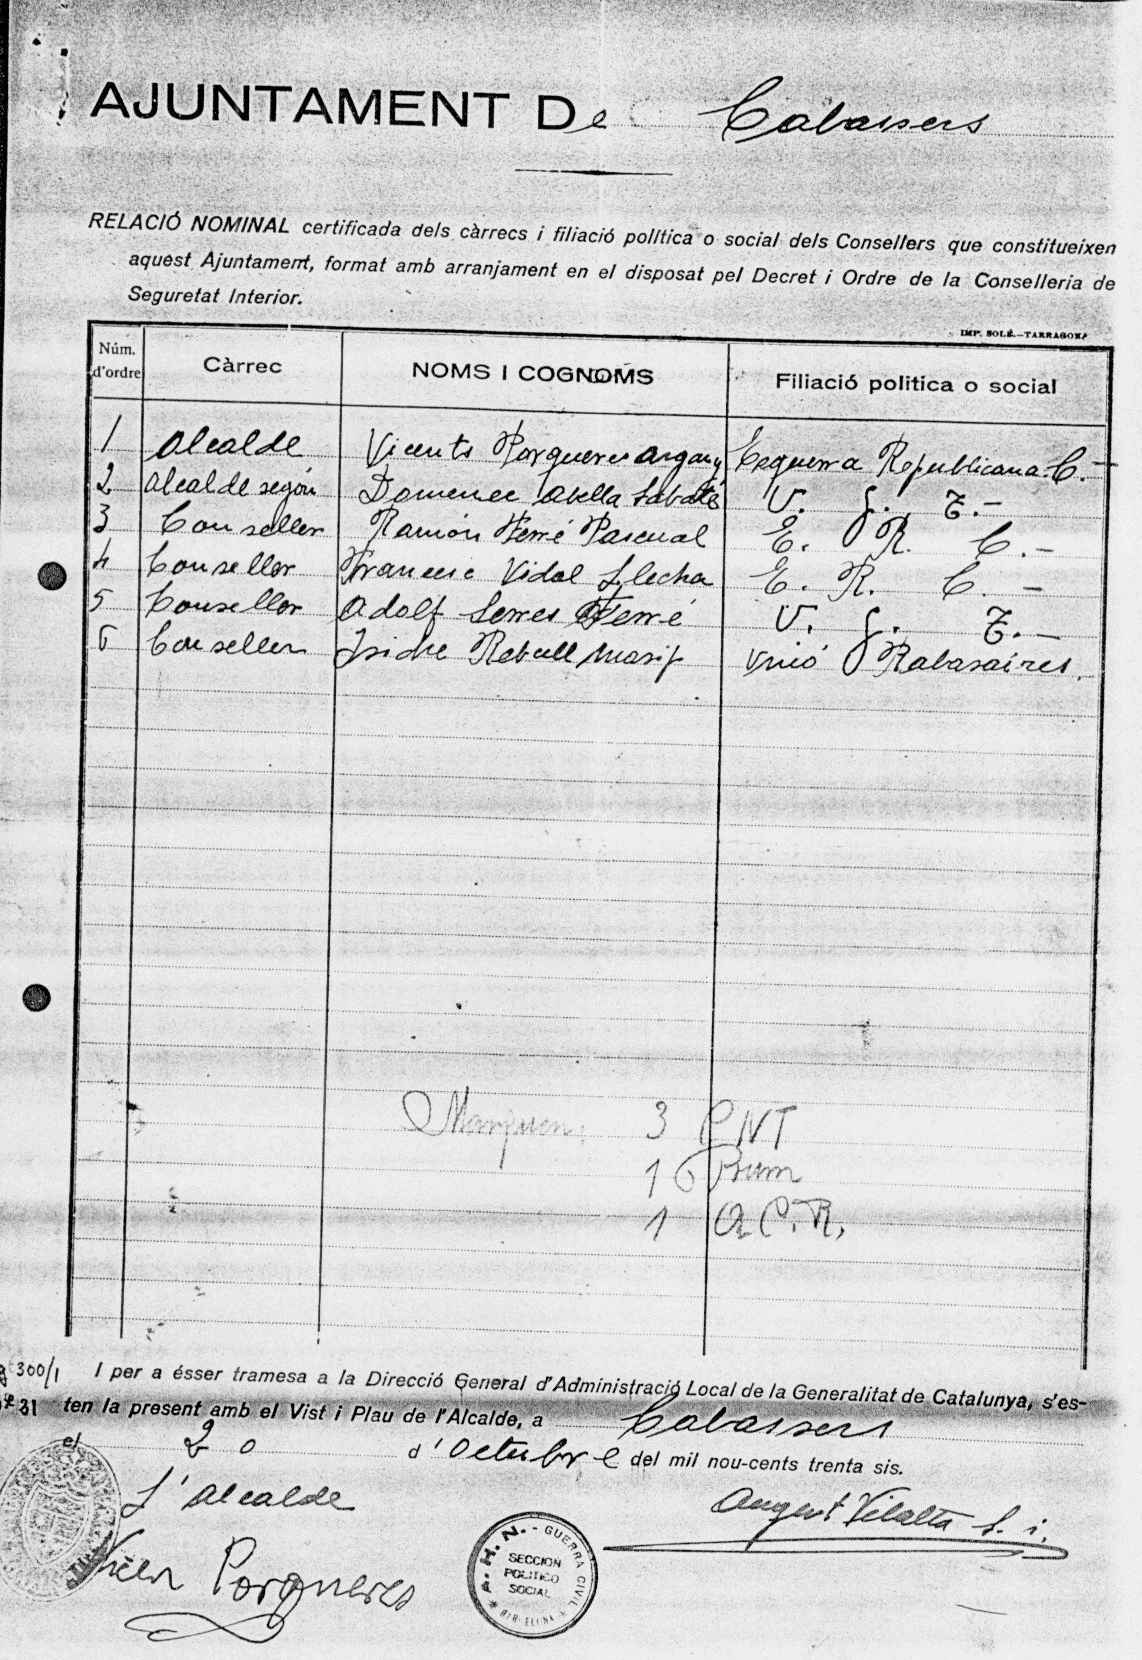 AJUNTAMENT De Cabassers
RELACIÓ NOMINAL certificada dels càrrecs i filiació política o social dels Consellers que constitueixen
aquest Ajuntament, format amb arranjament en el disposat pel Decret i Ordre de la Conselleria de
Seguretat Interior.
IMP. SOLÉ.—TARRAGONA
Núm. d'ordre Càrrec NOMS I COGNOMS Filiació politica o social
1 Alcalde Vicents Porqueres Argany Esquerra Republicana C.-
2 Alcalde segón Domenec Abella Sabaté U. G. T.-
3 Conseller Ramón Ferré Pascual E. R. C.-
4 Conseller Francesc Vidal Llecha E. R. C. -
5 Conseller Adolf Serres Ferré U. G. T.-
6 Conseller Isidre Rebull Masip Unió Rabasaires.
3 CNT
1 Poum
1 A C. R.
300/1 I per a ésser tramesa a la Direcció General d'Administració Local de la Generalitat de Catalunya, s'es-
31 ten la present amb el Vist i Plau de l'Alcalde, a Cabassers
el 20 d'Octubre del mil nou-cents trenta sis.
L'Alcalde
August Vilalta S. i.
Vicen Porqueres
A. H. N. - GUERRA CIVIL
SECCION
POLITICO
SOCIAL